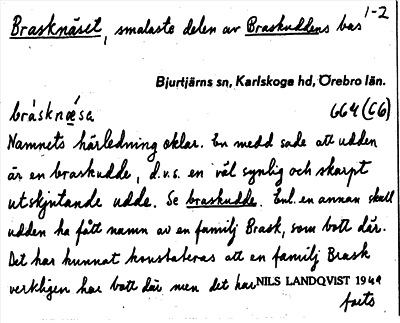 Brasknäset, smalaste delen av Braskuddens bas 1-2
Bjurtjärns sn, Karlskoga hd, Örebro län.
bråsknǽsa 664 (C6)
Namnets härledning oklar. En medd sade att udden
är en braskudde, d.v.s. en väl synlig och skarpt
utskjutande udde. Se braskudde. Enl. en annan skall
udden ha fått namn av en familj Brask, som bott där.
Det har kunnat konstateras att en familj Brask
verkligen har bott där men det har NILS LANDQVIST 1949
forts